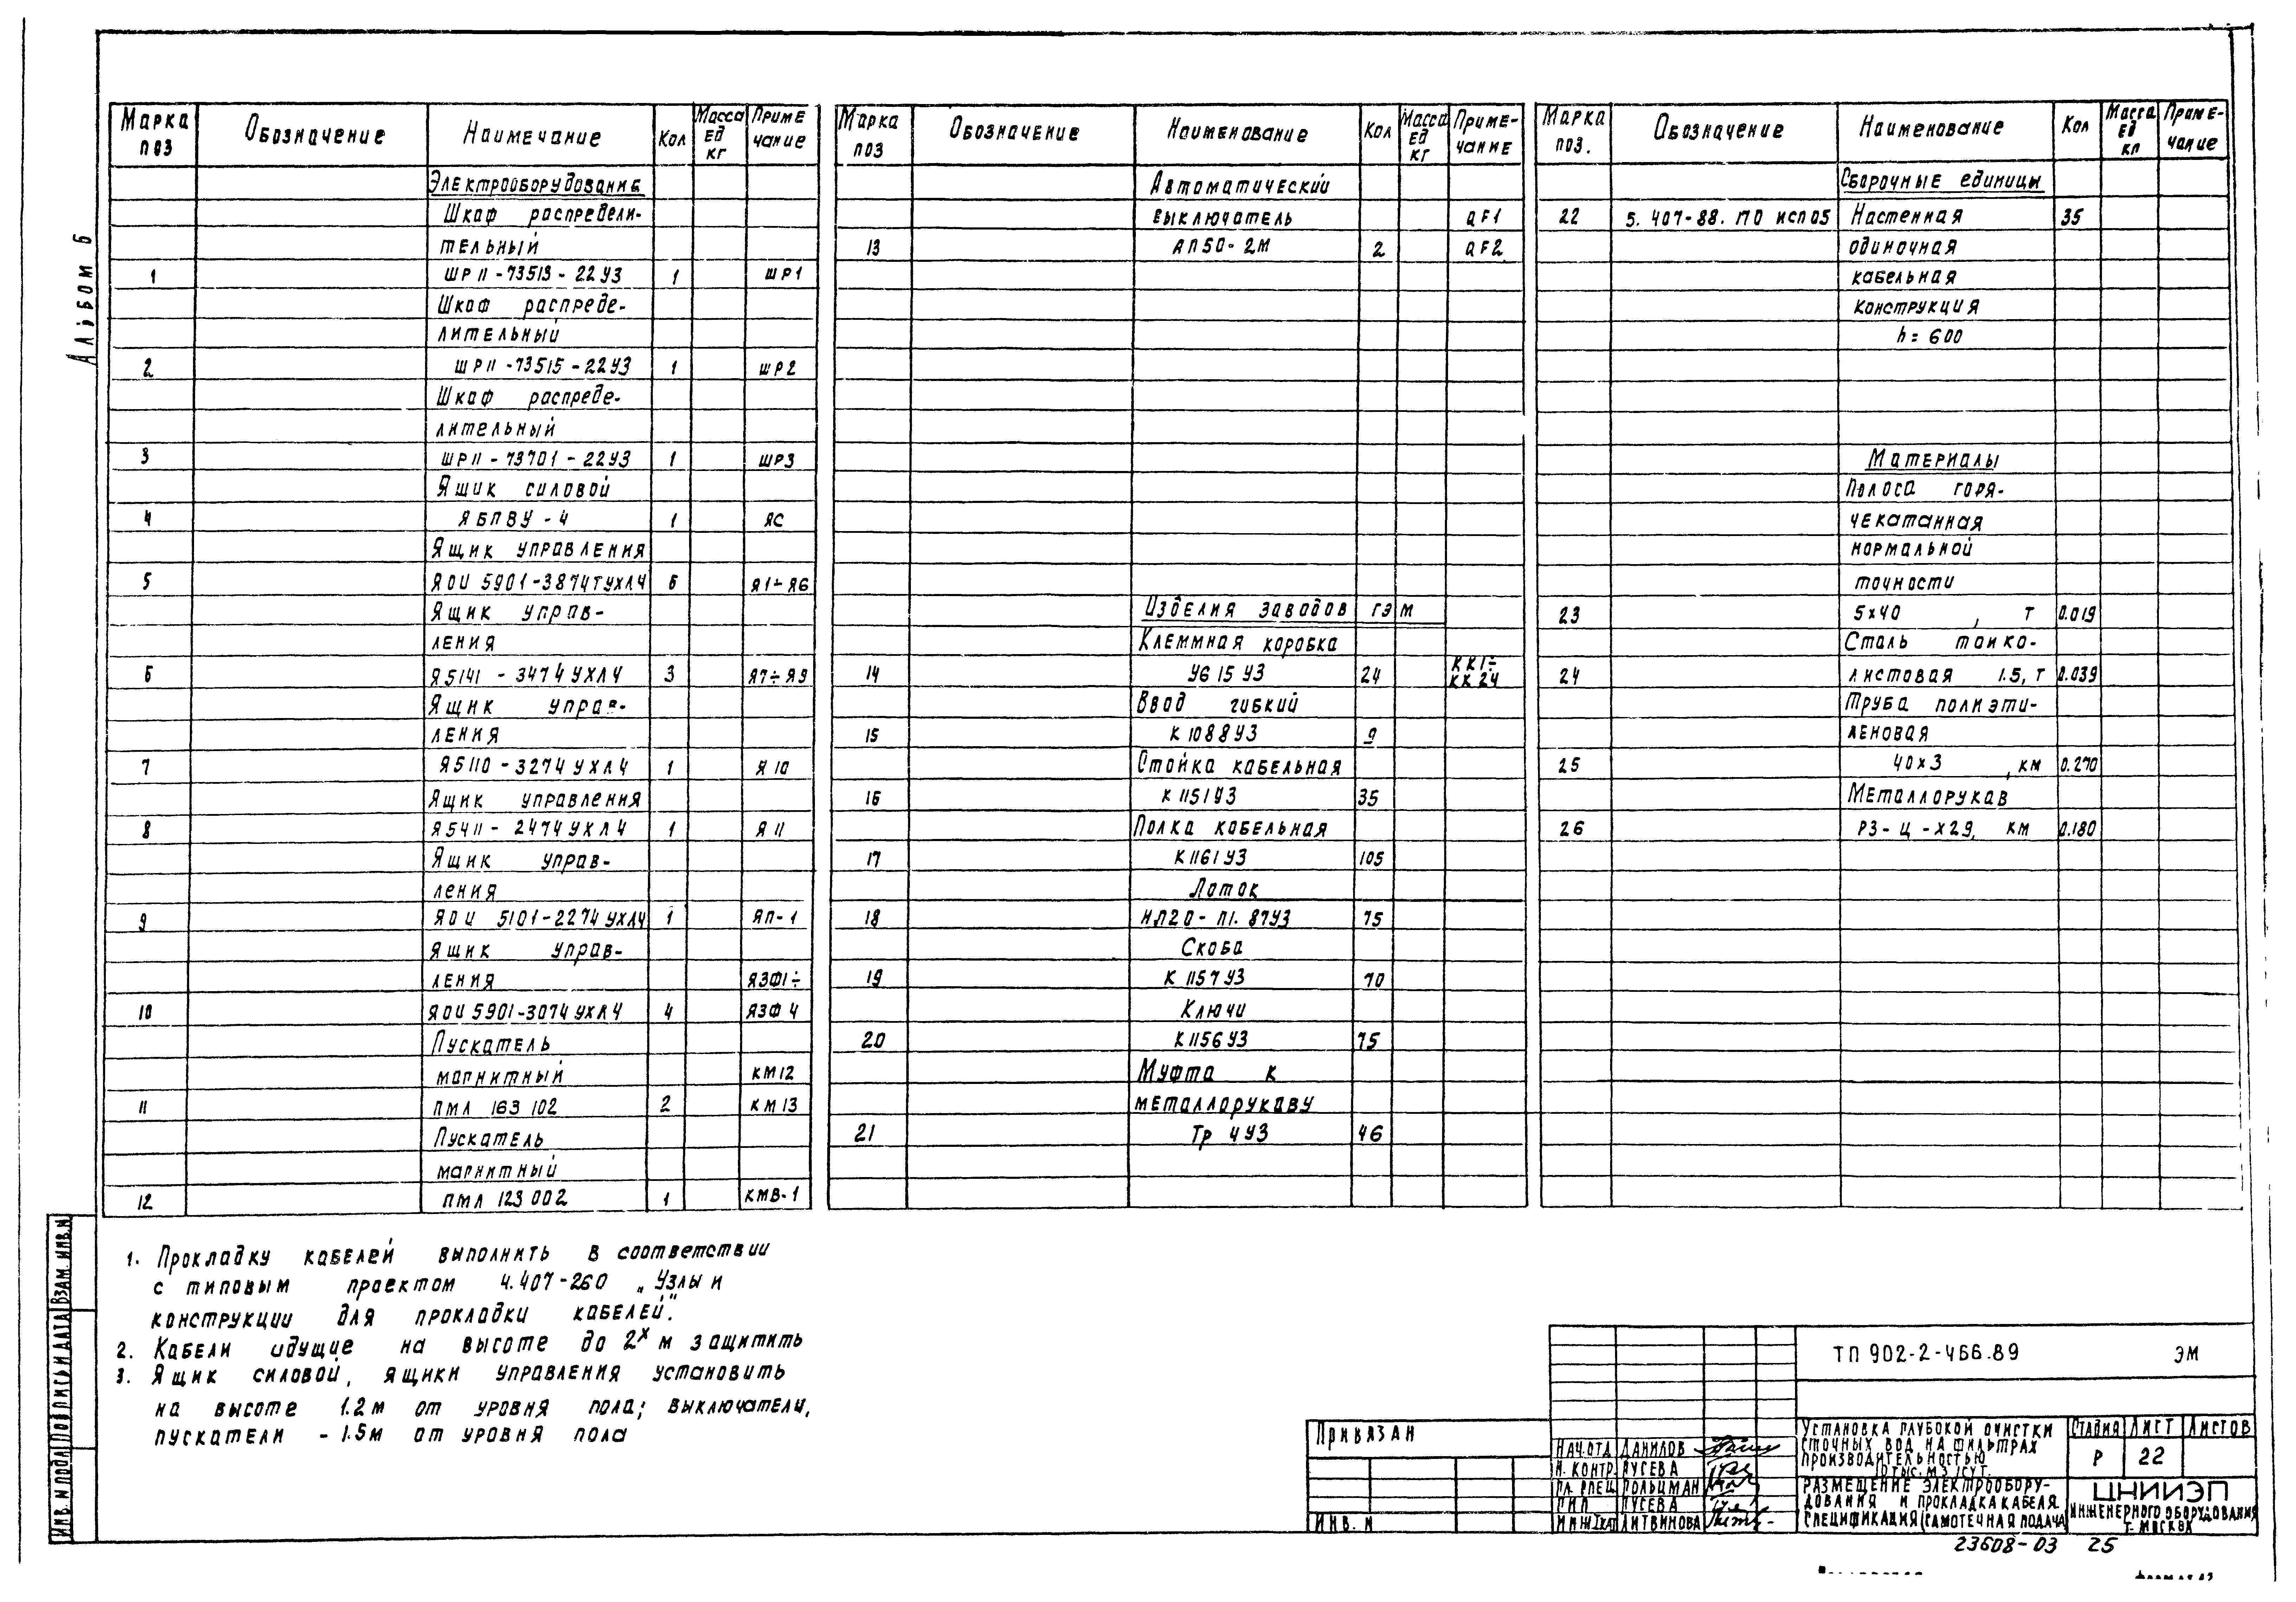 Альбом 5
Марка поз Обозначение Наимечание Кол Масса ед кг Примечание
Электрооборудование
Шкаф распредели-
тельный
1 ШР 11-73513-22У3 1 ШР1
Шкаф распреде-
лительный
2 ШР11-73515-22У3 1 ШР2
Шкаф распреде-
лительный
3 ШР11-73701-22У3 1 ШР3
Ящик силовой
4 ЯБПВУ-4 1 ЯС
Ящик управления
5 ЯОИ 5901-3874ТУХЛ4 6 Я1÷Я6
Ящик управ-
ления
6 Я5141-3474УХЛ4 3 Я7÷Я9
Ящик управ-
ления
7 Я5110-3274УХЛ4 1 Я10
Ящик управления
8 Я5411-2474УХЛ4 1 Я11
Ящик управ-
ления
9 ЯОИ 5101-2274УХЛ4 1 ЯП-1
Ящик управ-
ления ЯЗФ1÷
10 ЯОИ 5901-3074УХЛ4 4 ЯЗФ4
Пускатель
магнитный КМ12
11 ПМЛ 163 102 2 КМ13
Пускатель
магнитный
12 ПМЛ 123 002 1 КМВ-1
Марка поз Обозначение Наименование Кол Масса ед кг Приме-чание
Автоматический
выключатель QF1
13 АП50-2М 2 QF2
Изделия заводов ГЭМ
Клеммная коробка
14 У615У3 24 КК1÷ КК24
Ввод гибкий
15 К1088У3 9
Стойка кабельная
16 К1151У3 35
Полка кабельная
17 К1161У3 105
Лоток
18 НЛ20-П1.87У3 75
Скоба
19 К1157У3 70
Ключи
20 К1156У3 75
Муфта к
металлорукаву
21 Тр 4У3 46
Марка поз. Обозначение Наименование Кол Масса ед кп Приме-чание
Сборочные единицы
22 5.407-88.170 исп05 Настенная 35
одиночная
кабельная
конструкция
h=600
Материалы
Полоса горя-
чекатанная
нормальной
точности
23 5х40 , т 0.019
Сталь тонко-
24 листовая 1.5, т 0.039
Труба полиэти-
леновая
25 40х3 , км 0.270
Металлорукав
26 РЗ-Ц-Х29, км 0.180
1. Прокладку кабелей выполнить в соответствии
с типовым проектом 4.407-260 „Узлы и
конструкции для прокладки кабелей".
2. Кабели идущие на высоте до 2х м защитить
3. Ящик силовой, ящики управления установить
на высоте 1.2м от уровня пола; выключатели,
пускатели - 1.5м от уровня пола
Инв. N подл Подпись и дата Взам. инв. N
Привязан
Инв. N
ТП 902-2-466.89 ЭМ
Нач.отд Данилов
Н. контр. Гусева
Гл. спец Гольцман
ГИП Гусева
Инж Iкат Литвинова
Установка глубокой очистки
сточных вод на фильтрах
производительностью
10 тыс. м3/сут.
Стадия Лист Листов
Р 22
Размещение электрообору-
дования и прокладка кабеля.
Спецификация (самотечная подача)
ЦНИИЭП
инженерного оборудования
г. Москва
23608-03 25